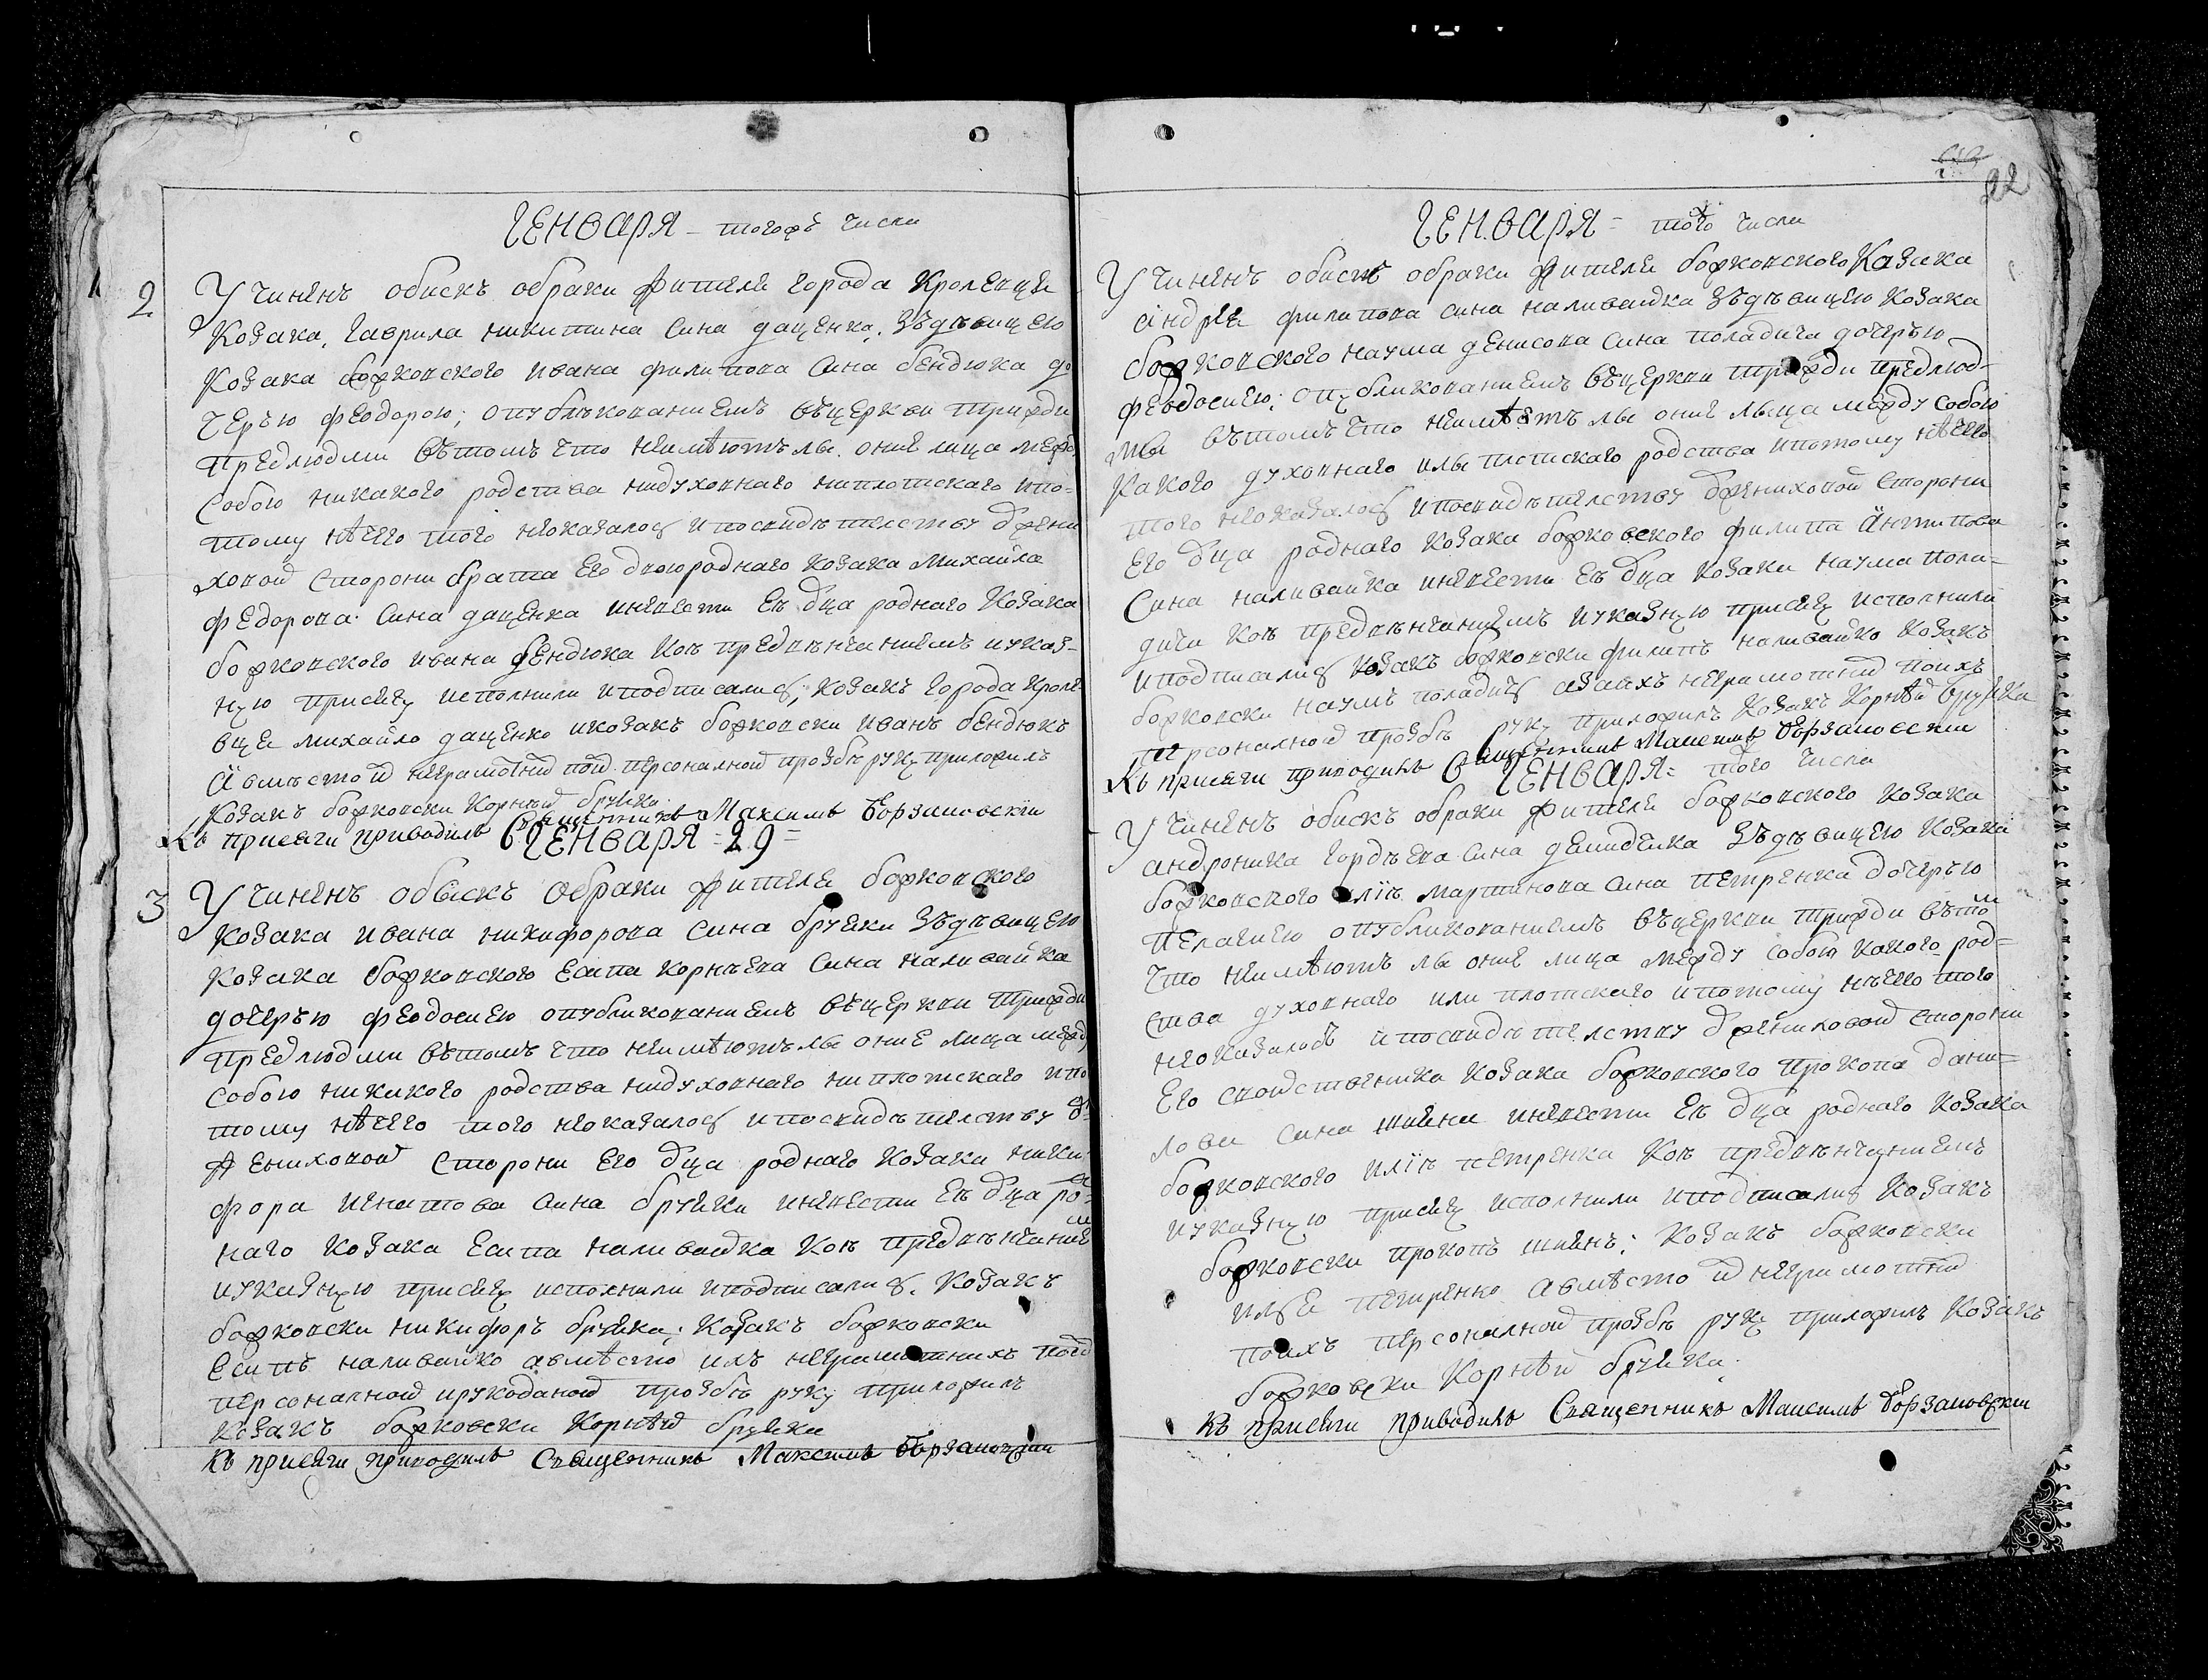 ГЕНВАРЯ - тогожъ числа
2
Учиненъ обискъ обраки жителе города Кролевце
Козака, Гаврила никитина сина даценка, зъдѣвицею
Козака божковского ивана филипова сина бендюка до
черъю феодорою; опублѣкованиемъ въцеркви трижди
предлюдми вътомъ что неимѣютъ лы оние лица межд
собою никакого родства нидуховнаго ниплотскаго ипо-
тому нѣчего того неказалос ипосвидѣтелству жени
ховой сторони брата его двоюроднаго козака михайла
федорова сина даценка иневести еѣ оца роднаго козака
божковского ивана бендюка кои предвѣнчаниемъ иуказ-
ную присягу исполнили иподписалис, козакъ города кроле
вце михайло даценко икозакъ божковски иванъ бендюкъ
авмѣсто ихъ неграмотнихъ поих персоналной прозбѣ руку приложилъ
Козакъ божковски Корнѣй бруяка.
Къ присяги приводилъ Священникъ Максимъ Борзаковскiи
ГЕНВАРЯ = 29 =
3
Учиненъ обыскъ обраки жителе божковского
козака ивана никифорова сина бруяки зъдѣвицею
козака божковского есипа корнѣева сина наливайка
дочеръю феодосиею опубликованиемъ въцеркви трижди
предлюдми вътомъ что неимѣютъ лы оние лица межд
собою никакого родства нидуховнаго ниплотскаго ипо
тому нѣчего того неказалос ипосвидѣтелству
жениховой сторони его оца роднаго козака ники
фора игнатова сина бруяки иневести еѣ оца ро
наго козака есипа наливайка кои предвѣнчание
иуказную присягу исполнили иподписалис. козакъ
божковски никифоръ бруяка; козакъ божковски
есипъ наливайко авмѣсто ихъ неграмотнихъ поих
персоналной ирукоданой прозбѣ руку приложилъ
козакъ божковски Корнѣй бруяка
Къ присяги приводилъ Священникъ Максимъ Борзаковскiи
22
ГЕНВАРЯ = того числа
Учиненъ обискъ обраки жителе божковского Казака
андрея филипова сина наливайка зъдѣвицею козака
божковского наума денисова сина поладича дочеръю
феодосиею; опубликованиемъ въцеркви трижди предлюд-
мы вътомъ что неимѣютъ лы оние лыца между собою
какого духовнаго илы плотскаго родства ипотому нѣчего
того неоказалос ипосвидѣтелству жениховой сторони
его оца роднаго козака божковского филипа антипова
сина наливайка иневести еѣ оца козака наума пола-
дича кои предвѣнчаниемъ иуказную присягу исполнили
иподписалис козакъ божковски филипъ наливайко козакъ
божковски наумъ поладичъ азаихъ неграмотний поихъ
персоналной прозбѣ руку приложилъ Козакъ Корнѣй бруяка
Къ присяги приводилъ Священникъ Максимъ Борзаковскiи
ГЕНВАРЯ = того числа
Учиненъ обискъ обраки жителе божковского козака
андроника гордѣева сина демидѣнка зъдѣвицею козака
божковского илiи мартинова сина петренка дочеръю
пелагиею опубликованиемъ въцеркви трижди вътом
что неимѣютъ лы оние лица между собою какого род=
ства духовнаго или плотскаго ипотому нѣчего того
неоказалосъ ипосвидѣтелству жениховой сторони
его сводственика козака божковского прокопа дани=
лова сина шияна иневести еѣ оца роднаго козака
божковского илiи петренка кои предвѣнчаниемъ
иуказную присягу исполнили иподписалис козакъ
божковски прокопъ шиянъ; козакъ божковски
илѣя петренко авмѣсто их неграмотних
поихъ персоналной прозбѣ руку приложилъ козакъ
божковски Корнѣй бруяка.
Къ присяги приводилъ Священникъ Максимъ Борзаковскiи